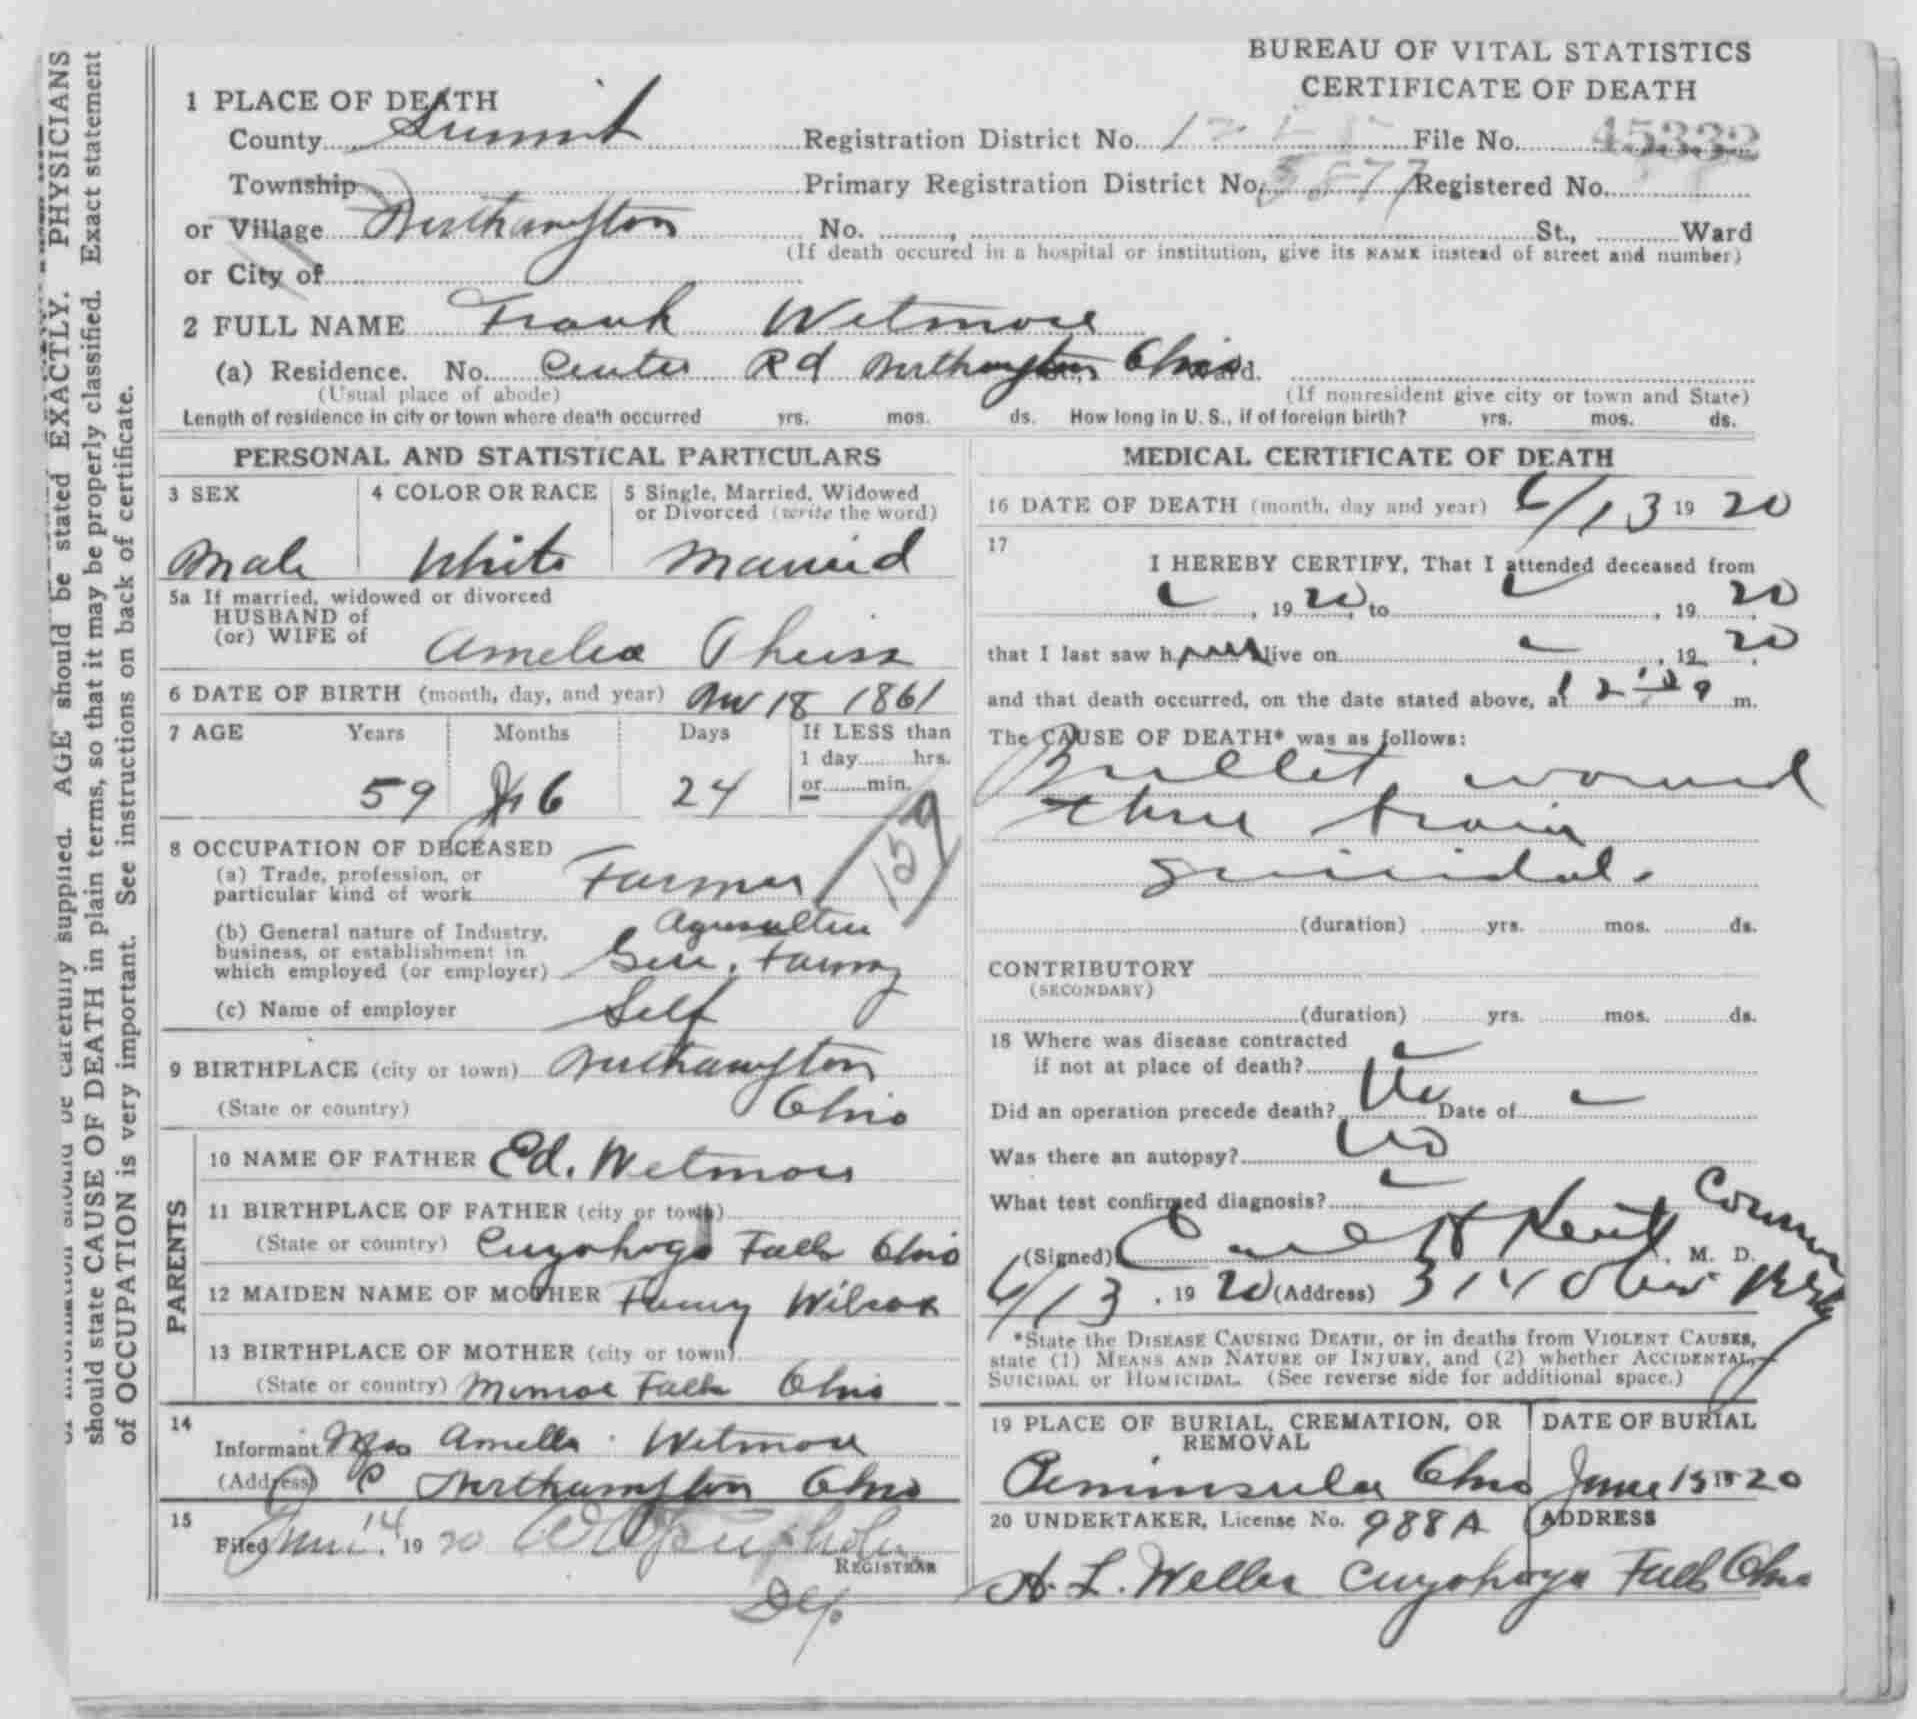 BUREAU OF VITAL STATISTICS
CERTIFICATE OF DEATH
1 PLACE OF DEATH
County Summit Registration District No. File No. 45332
Township Primary Registration District No. Registered No.
or Village Northampton No. St., Ward
(If death occured in a hospital or institution, give its NAME instead of street and number)
or City of
2 FULL NAME Frank Wetmore
(a) Residence. No. Center Rd Northampton Ohio St., Ward.
(Usual place of abode) (If nonresident give city or town and State)
Length of residence in city or town where death occurred yrs. mos. ds. How long in U. S., if of foreign birth? yrs. mos. ds.
PERSONAL AND STATISTICAL PARTICULARS
3 SEX
Male
4 COLOR OR RACE
White
5 Single, Married, Widowed
or Divorced (write the word)
Married
5a If married, widowed or divorced
HUSBAND of
(or) WIFE of
Amelia Theiss
6 DATE OF BIRTH (month, day, and year) Nov 18 1861
7 AGE Years Months Days If LESS than
1 day hrs.
or min.
59 6 24
8 OCCUPATION OF DECEASED
(a) Trade, profession, or
particular kind of work Farmer
159
(b) General nature of Industry,
business, or establishment in
which employed (or employer)
Agriculture
Gen. Farming
(c) Name of employer Self
9 BIRTHPLACE (city or town) Northampton
(State or country) Ohio
PARENTS
10 NAME OF FATHER Ed. Wetmore
11 BIRTHPLACE OF FATHER (city or town)
(State or country) Cuyahoga Falls Ohio
12 MAIDEN NAME OF MOTHER Fanny Wilcox
13 BIRTHPLACE OF MOTHER (city or town)
(State or country) Monroe Falls Ohio
14
Informant Mrs Amelia Wetmore
(Address) Northampton Ohio
15
Filed June 14, 1920
REGISTRAR
Dep.
MEDICAL CERTIFICATE OF DEATH
16 DATE OF DEATH (month, day and year) 6/13 1920
17
I HEREBY CERTIFY, That I attended deceased from
, 1920, to , 1920
that I last saw h alive on , 1920,
and that death occurred, on the date stated above, at m.
The CAUSE OF DEATH* was as follows:
Bullet wound
thru brain
suicidal.
(duration) yrs. mos. ds.
CONTRIBUTORY
(SECONDARY)
(duration) yrs. mos. ds.
18 Where was disease contracted
if not at place of death?
Did an operation precede death? No Date of
Was there an autopsy? No
What test confirmed diagnosis?
(Signed) H Kent, M. D. Coroner
6/13, 1920 (Address)
*State the DISEASE CAUSING DEATH, or in deaths from VIOLENT CAUSES,
state (1) MEANS AND NATURE OF INJURY, and (2) whether ACCIDENTAL,
SUICIDAL or HOMICIDAL. (See reverse side for additional space.)
19 PLACE OF BURIAL, CREMATION, OR
REMOVAL
Peninsula Ohio
DATE OF BURIAL
June 15 1920
20 UNDERTAKER, License No. 988A
ADDRESS
A. L. Weller Cuyahoga Falls Ohio
be carefully supplied. AGE should be stated EXACTLY. PHYSICIANS
should state CAUSE OF DEATH in plain terms, so that it may be properly classified. Exact statement
of OCCUPATION is very important. See instructions on back of certificate.